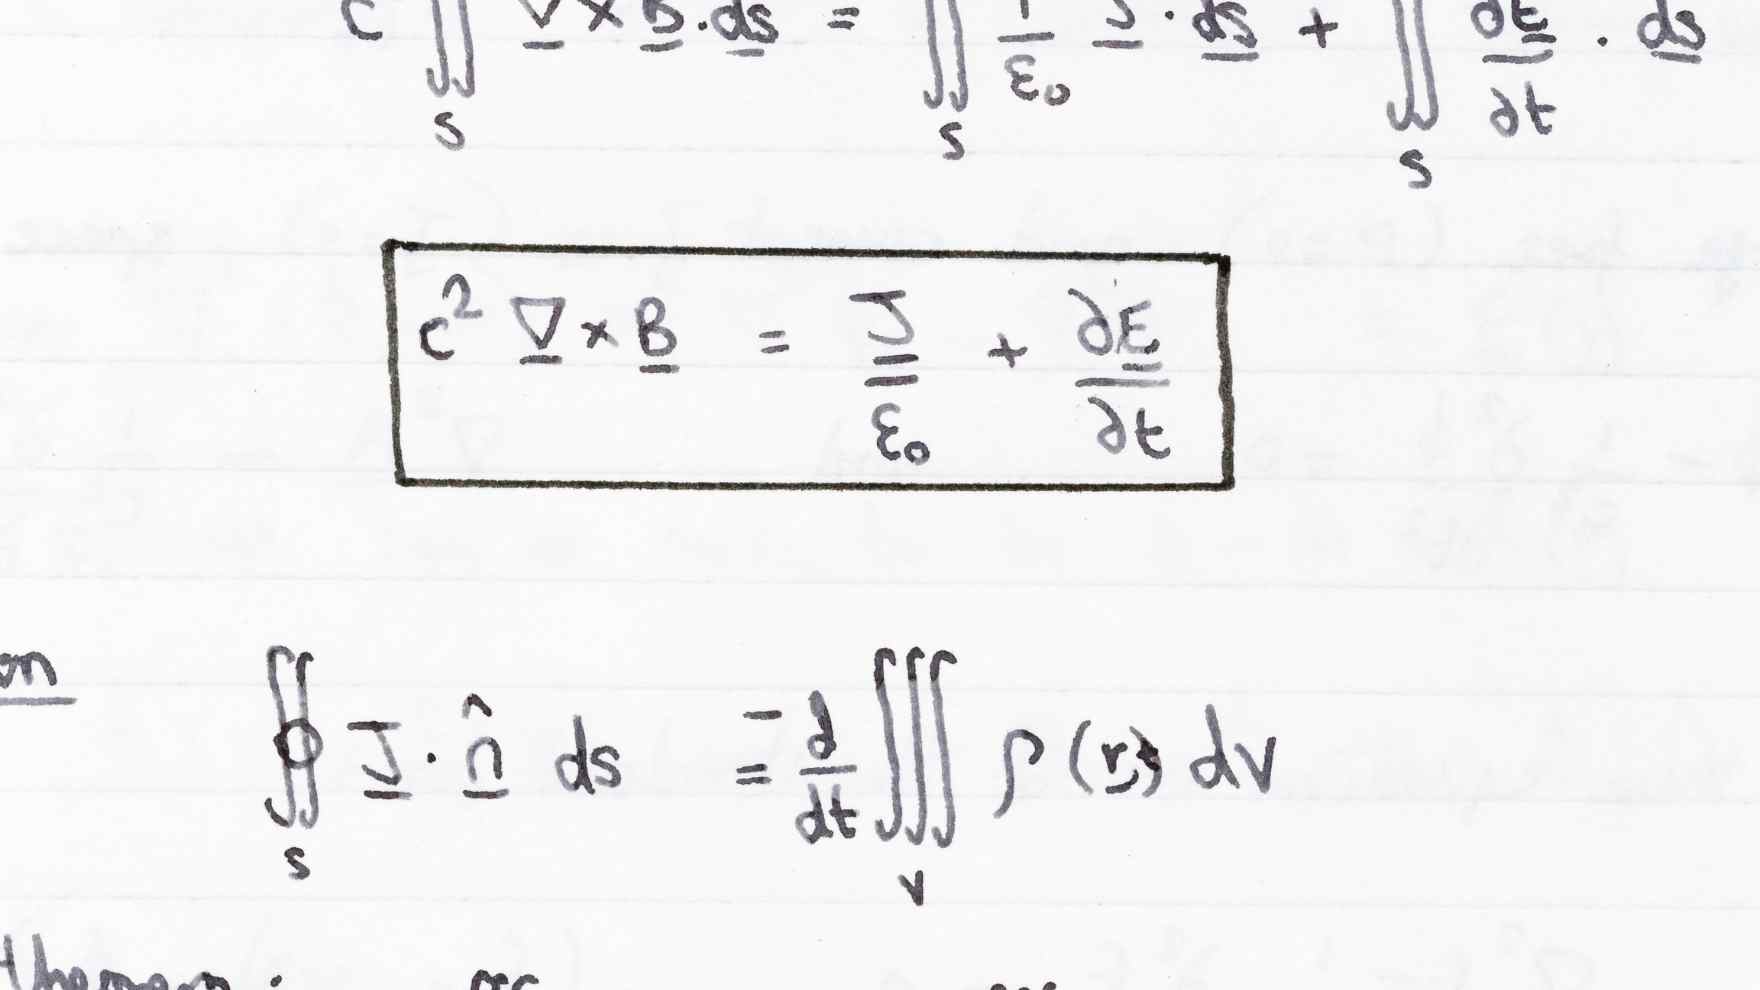 c ∬_S ∇ × B · ds = ∬_S 1/ε₀ J · ds + ∬_S ∂E/∂t · ds
c² ∇ × B = J/ε₀ + ∂E/∂t
on ∯_S J · n̂ ds = - d/dt ∭_V ρ (r,t) dv
theorem :